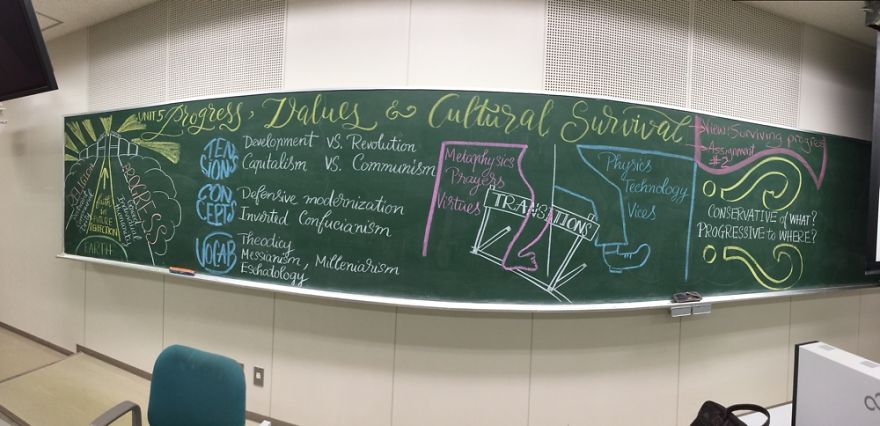 UNIT 5 Progress, Values & Cultural Survival
RELIGION
PROGRESS
Faith
in
FUTURE
PERFECTION
EARTH
TEN
SIONS
Development VS. Revolution
Capitalism VS. Communism
CON
CEPTS
Defensive modernization
Inverted Confucianism
VOCAB
Theodicy
Messianism, Milleniarism
Eschadology
Metaphysics
Prayers
Virtues
TRANSITIONS
Physics
Technology
Vices
View: Surviving progress
Assignment
#2
CONSERVATIVE of WHAT?
PROGRESSIVE to WHERE?